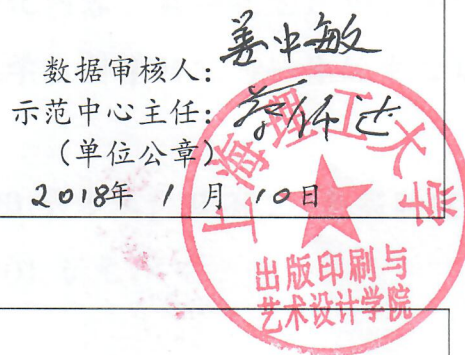 数据审核人：姜中敏
示范中心主任：
（单位公章）
2018年 1 月 10日
上海理工大学
出版印刷与
艺术设计学院